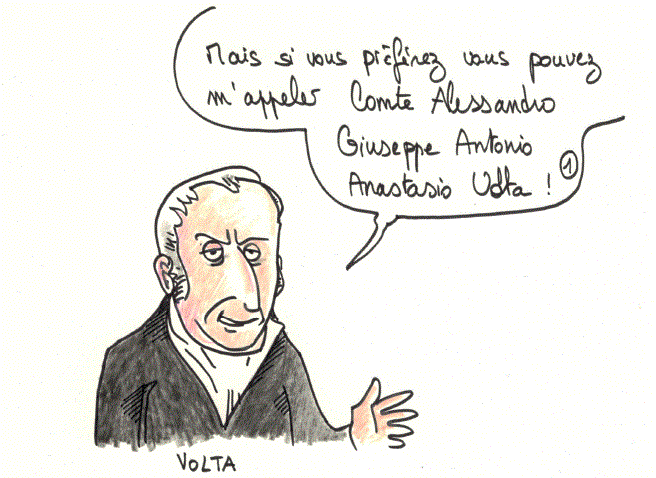 Mais si vous préférez vous pouvez
m'appeler Comte Alessandro
Giuseppe Antonio
Anastasio Volta ! 1
VOLTA